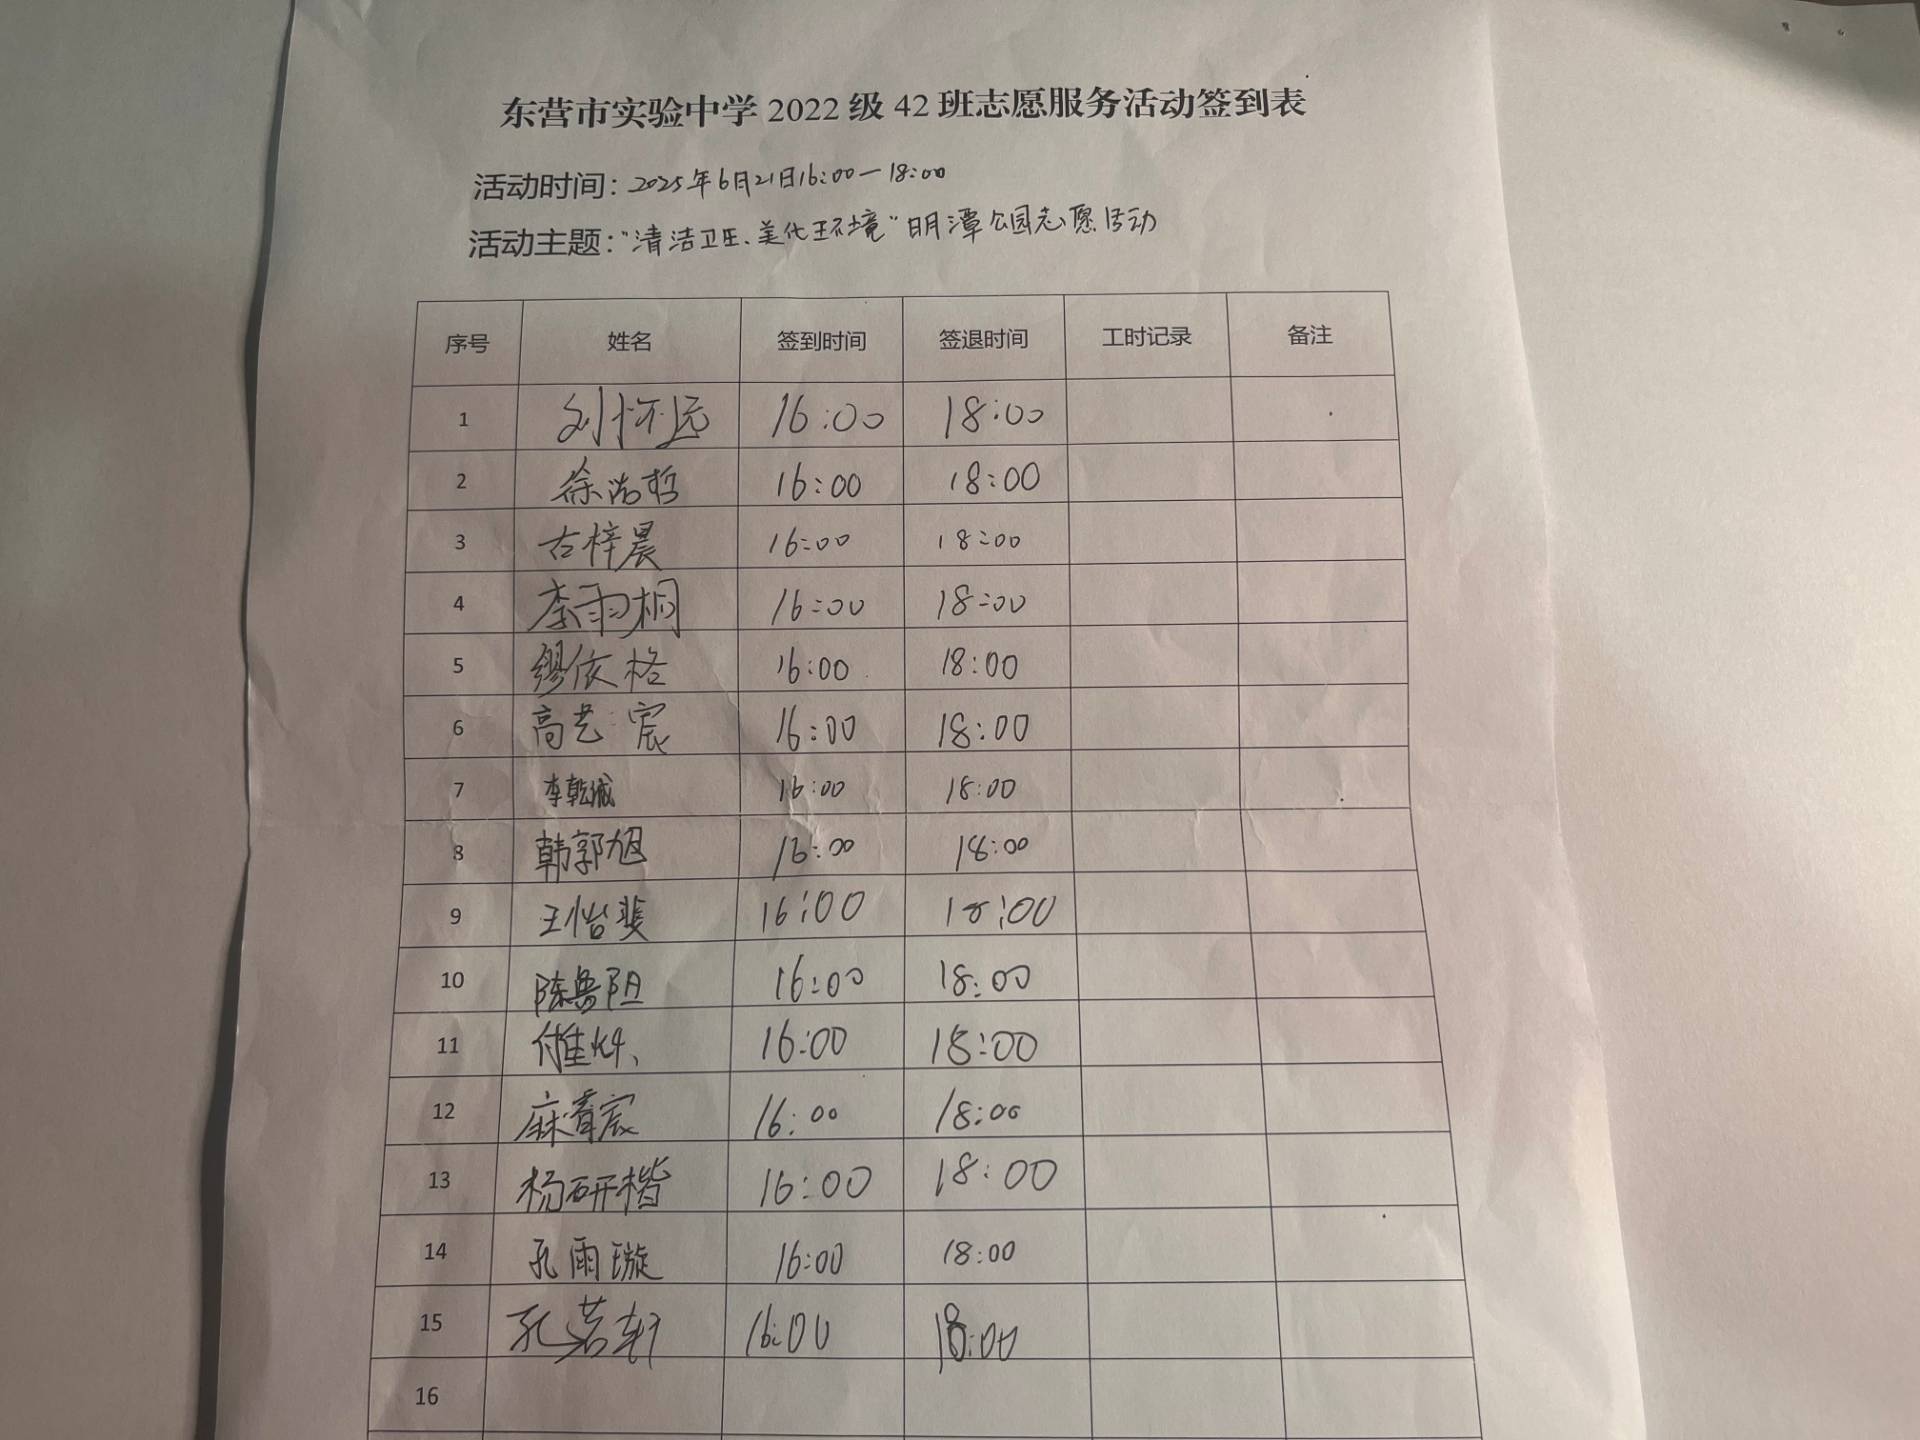 东营市实验中学 2022 级 42 班志愿服务活动签到表
活动时间：2025年6月21日16:00—18:00
活动主题：“清洁卫生、美化环境”明潭公园志愿活动
序号 姓名 签到时间 签退时间 工时记录 备注
1 刘怀远 16:00 18:00
2 徐尚哲 16:00 18:00
3 古梓晨 16:00 18:00
4 李雨桐 16:00 18:00
5 缪依格 16:00 18:00
6 高艺宸 16:00 18:00
7 李乾诚 16:00 18:00
8 韩郭旭 16:00 18:00
9 王怡斐 16:00 18:00
10 16:00 18:00
11 16:00 18:00
12 16:00 18:00
13 杨研楷 16:00 18:00
14 孔雨璇 16:00 18:00
15 孔若轩 16:00 18:00
16